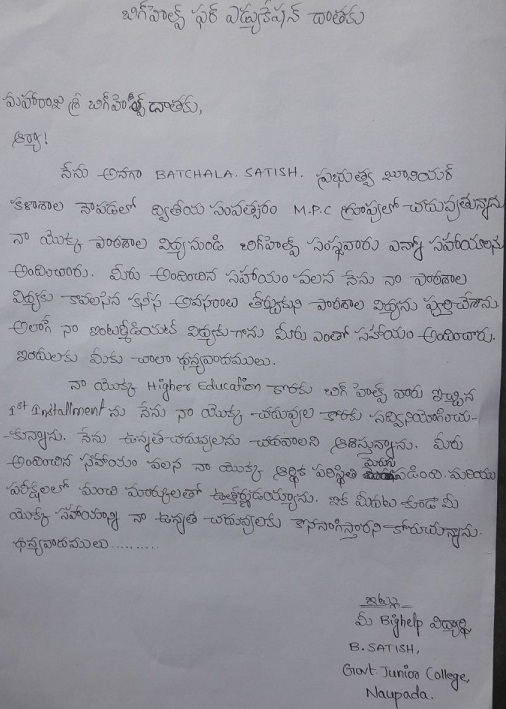 బిగ్‌హెల్ప్ ఫర్ ఎడ్యుకేషన్ దాతకు
మహారాజశ్రీ బిగ్‌హెల్ప్ దాతకు,
ఆర్యా!
నేను అనగా BATCHALA. SATISH. ప్రభుత్వ జూనియర్
కళాశాల నౌపడలో ద్వితీయ సంవత్సరం M.P.C గ్రూపులో చదువుతున్నాను
నా యొక్క పాఠశాల విద్యనుండి బిగ్‌హెల్ప్ సంస్థవారు ఎన్నో సహాయాలను
అందించారు. మీరు అందించిన సహాయం వలన నేను నా పాఠశాల
విద్యకు కావలసిన కనీస అవసరాలు తీర్చుకుని పాఠశాల విద్యను పూర్తిచేశాను.
అలాగే నా ఇంటర్మీడియట్ విద్యకుగాను మీరు ఎంతో సహాయం అందించారు.
ఇందులకు మీకు చాలా ధన్యవాదములు.
నా యొక్క Higher Education కొరకు బిగ్ హెల్ప్ వారు ఇచ్చిన
1st Installment ను నేను నా యొక్క చదువుల కొరకు సద్వినియోగించు-
కున్నాను. నేను ఉన్నత చదువులను చదవాలని ఆశిస్తున్నాను. మీరు
అందించిన సహాయం వలన నా యొక్క ఆర్థిక పరిస్థితి మెరుగుపడింది. మరియు
పరీక్షలలో మంచి మార్కులతో ఉత్తీర్ణుడయ్యాను. ఇక మీదట కూడా మీ
యొక్క సహాయాన్ని నా ఉన్నత చదువులకు కొనసాగిస్తారని కోరుచున్నాను.
ధన్యవాదములు..........
ఇట్లు
మీ Bighelp విద్యార్థి
B. SATISH,
Govt Junior College,
Naupada.